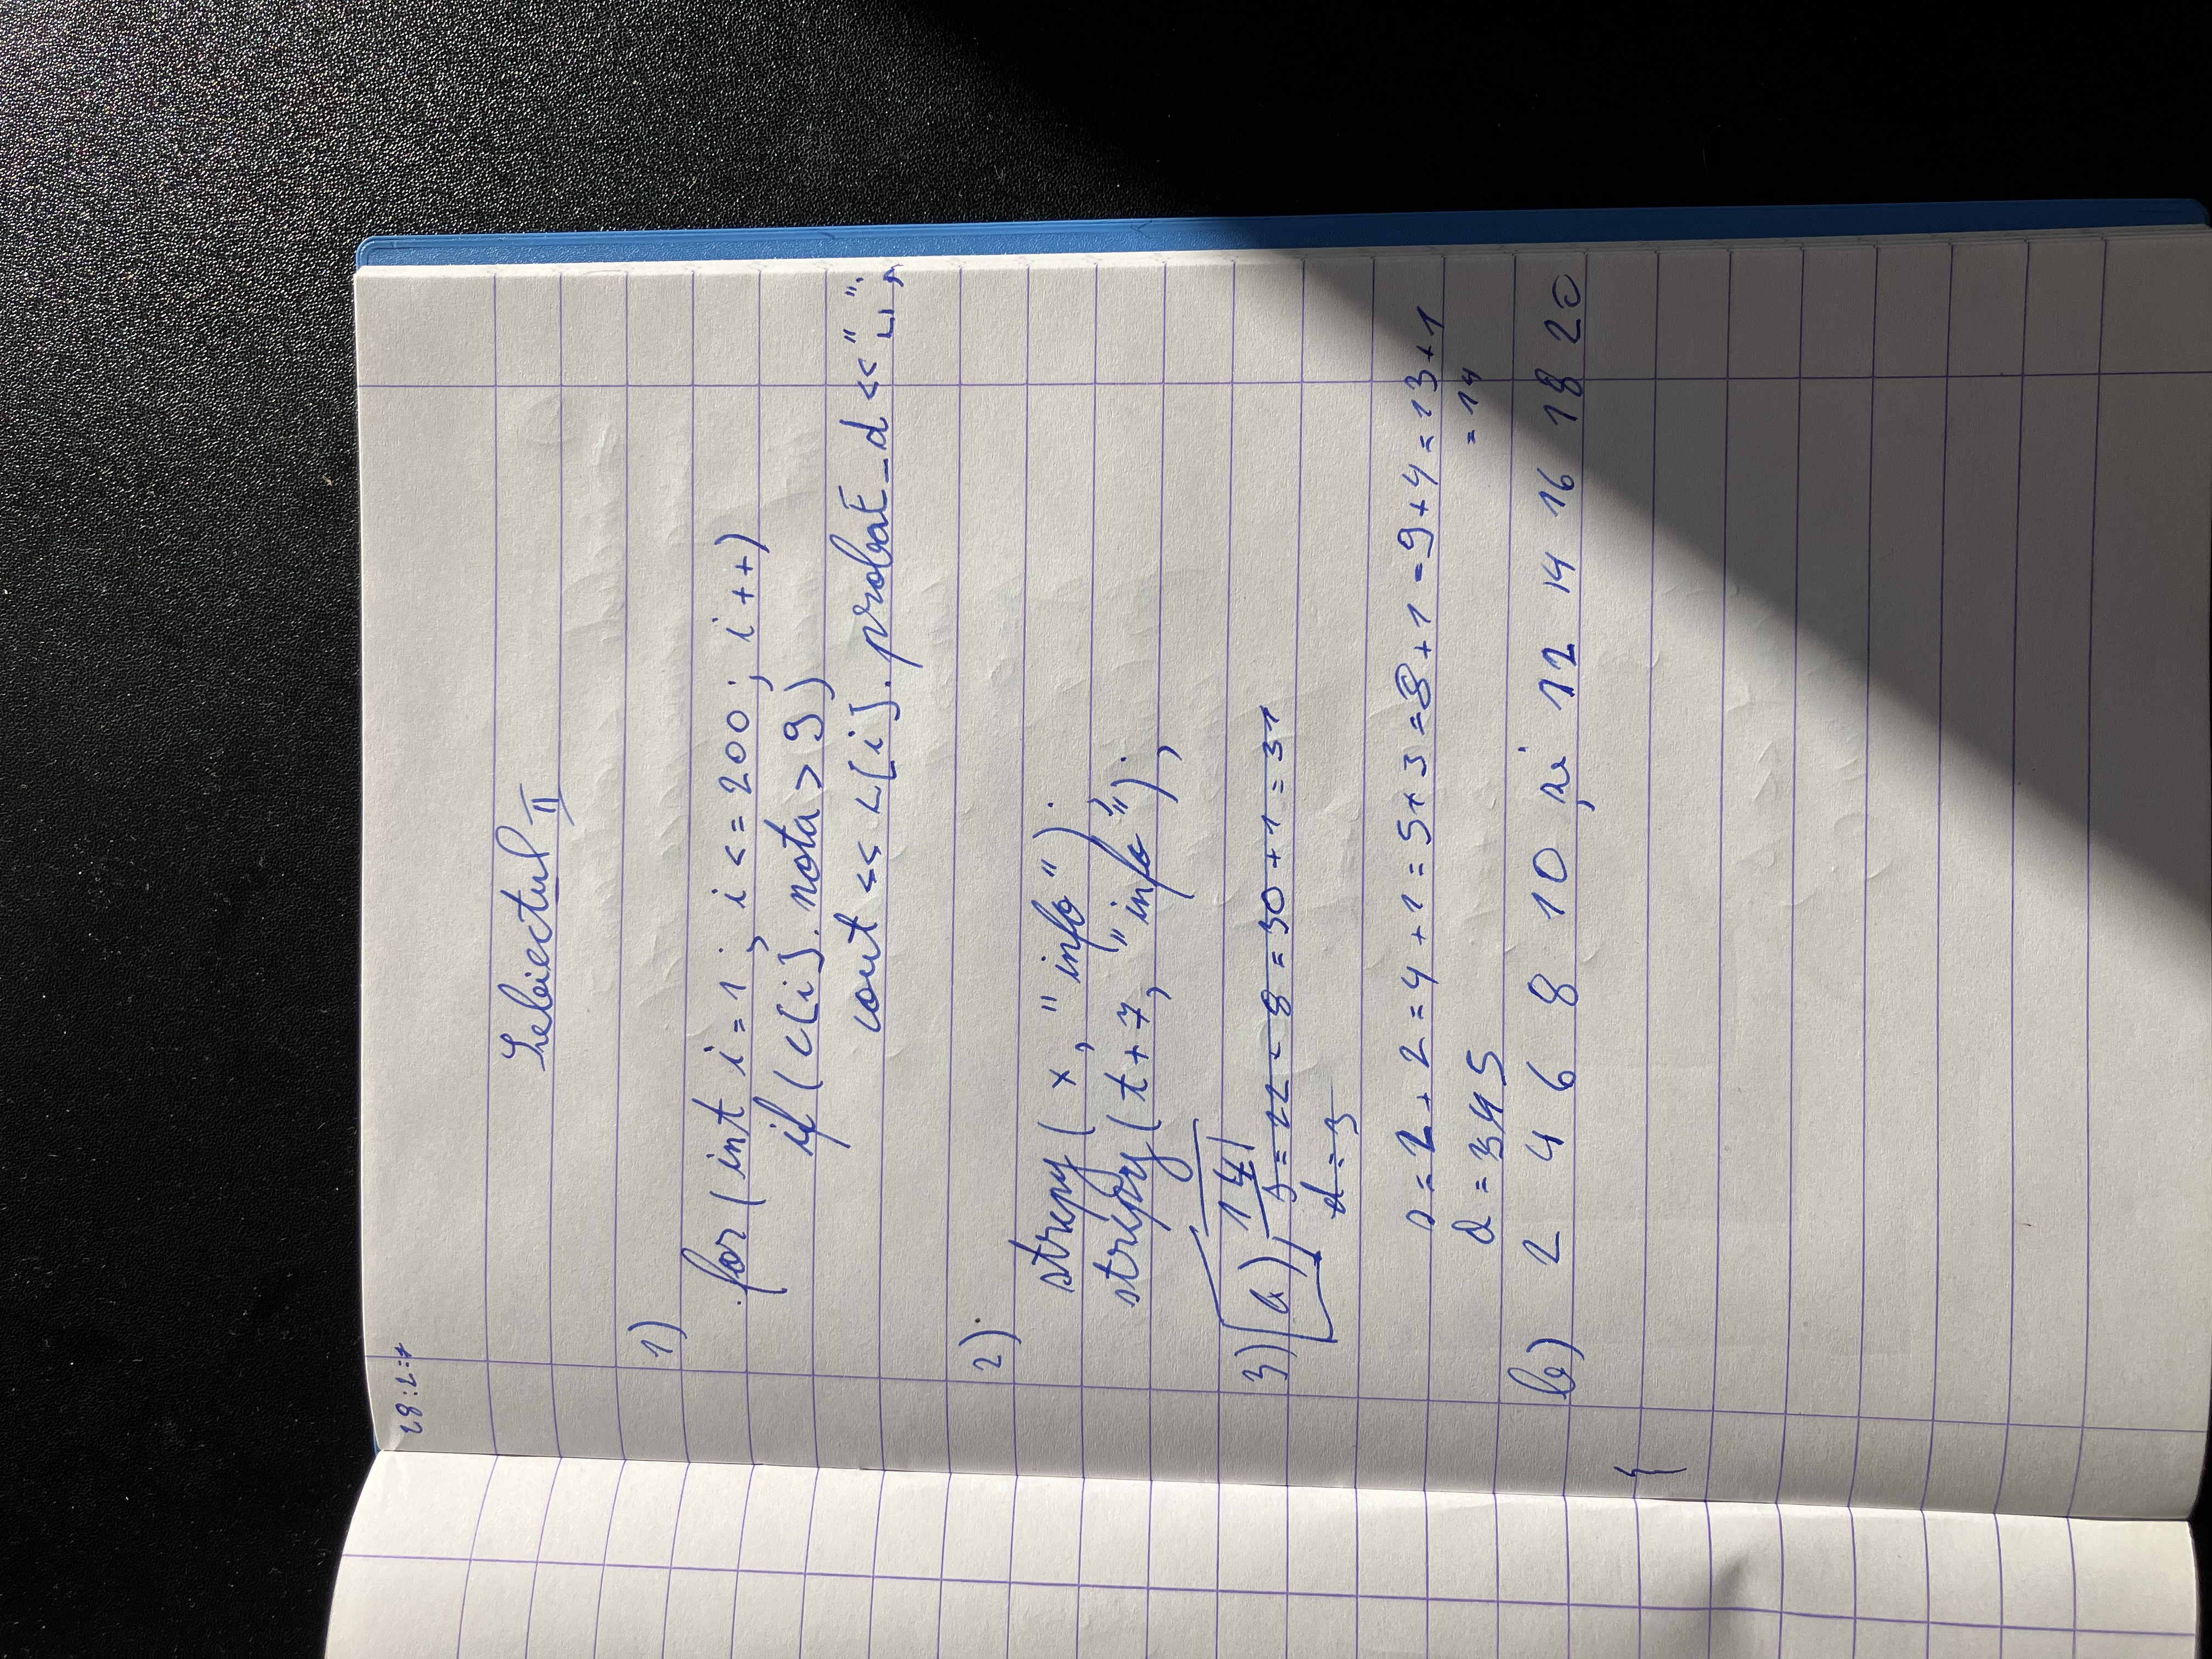 28:2=7
Subiectul II
1)
for (int i=1; i<=200; i++)
if (c[i].nota > 9)
cout << c[i]. probat_d << "␣";
2)
strcpy( x, "info" );
strcpy( t+7, "info" );
14
3) a) s = 22 - 8 = 30 + 1 = 31
d = 3
s = 2 + 2 = 4 + 1 = 5 + 3 = 8 + 1 = 9 + 4 = 13 + 1
= 14
d = 3 4 5
b) 2 4 6 8 10 și 12 14 16 18 20